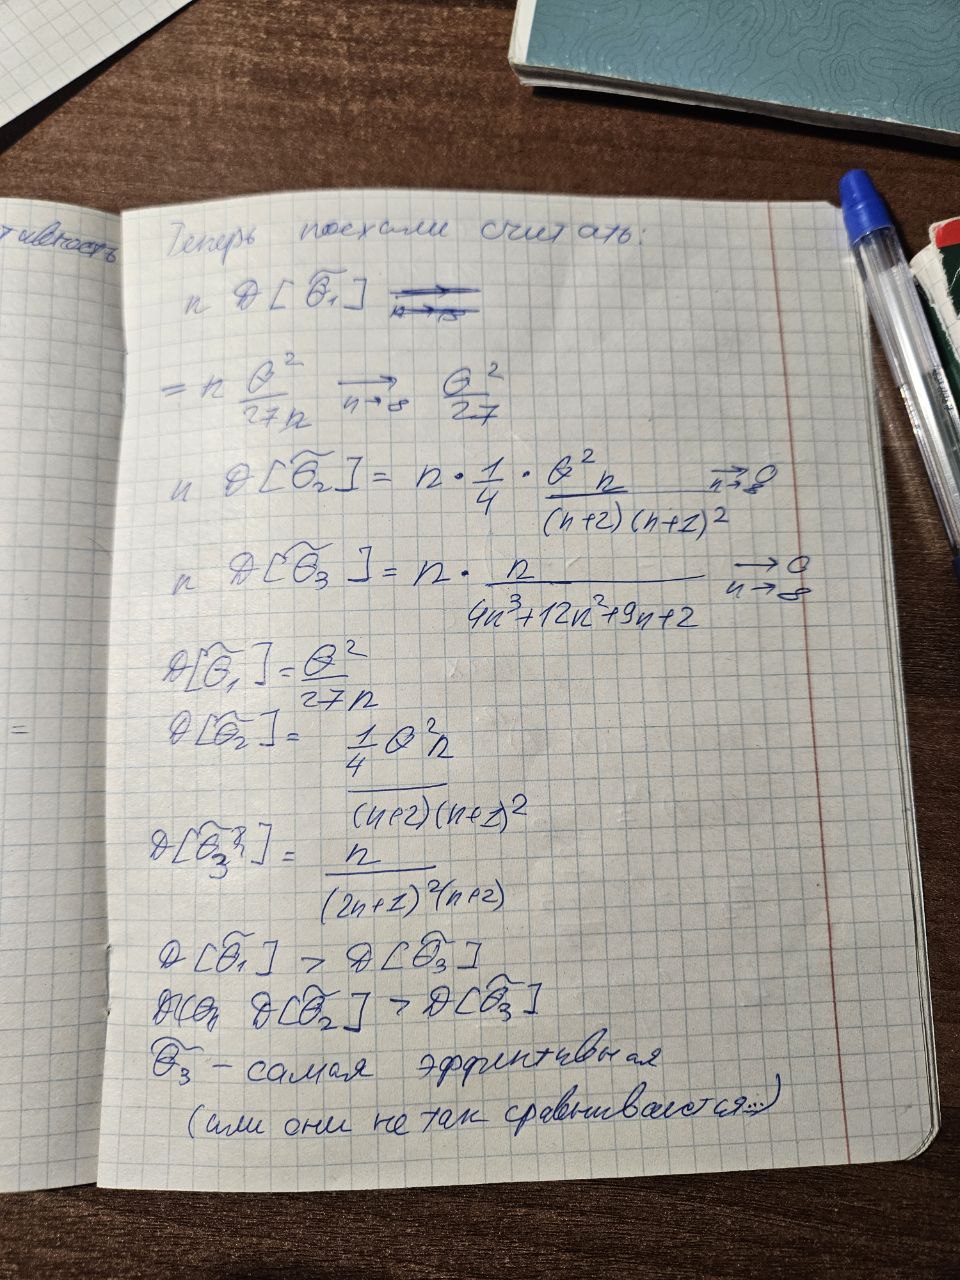 тивность
Теперь поехали считать:
n D[θ̃₁]
= n θ²/27n →(n→∞) θ²/27
n D[θ̃₂] = n · 1/4 · θ²n/(n+2)(n+1)² →(n→∞) 0
n D[θ̃₃] = n · n/4n³+12n²+9n+2 →(n→∞) 0
D[θ̃₁] = θ²/27n
=
D[θ̃₂] = 1/4 θ²n/(n+2)(n+1)²
D[θ̃₃] = n/(2n+1)²(n+2)
D[θ̃₁] > D[θ̃₃]
D[θ̃₂] > D[θ̃₃]
θ̃₃ – самая эффективная
(или они не так сравниваются...)